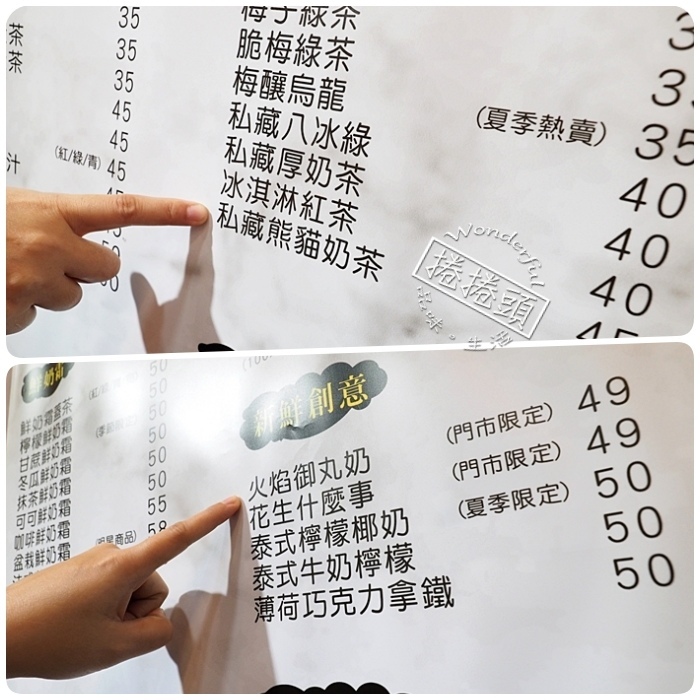 35
35
35
45
45
45
(紅/綠/青)
茶
茶
汁
梅子綠茶
脆梅綠茶
梅釀烏龍
私藏八冰綠
私藏厚奶茶
冰淇淋紅茶
私藏熊貓奶茶
(夏季熱賣)
35
40
40
40
45
Wonderful
捲捲頭
品味。生活
鮮奶霜
檸檬鮮奶霜
甘蔗鮮奶霜
冬瓜鮮奶霜
抹茶鮮奶霜
可可鮮奶霜
咖啡鮮奶霜
盆栽鮮奶霜
50
50
50
50
50
55
58
新鮮創意
火焰御丸奶 (門市限定) 49
花生什麼事 (門市限定) 49
泰式檸檬椰奶 (夏季限定) 50
泰式牛奶檸檬 50
薄荷巧克力拿鐵 50